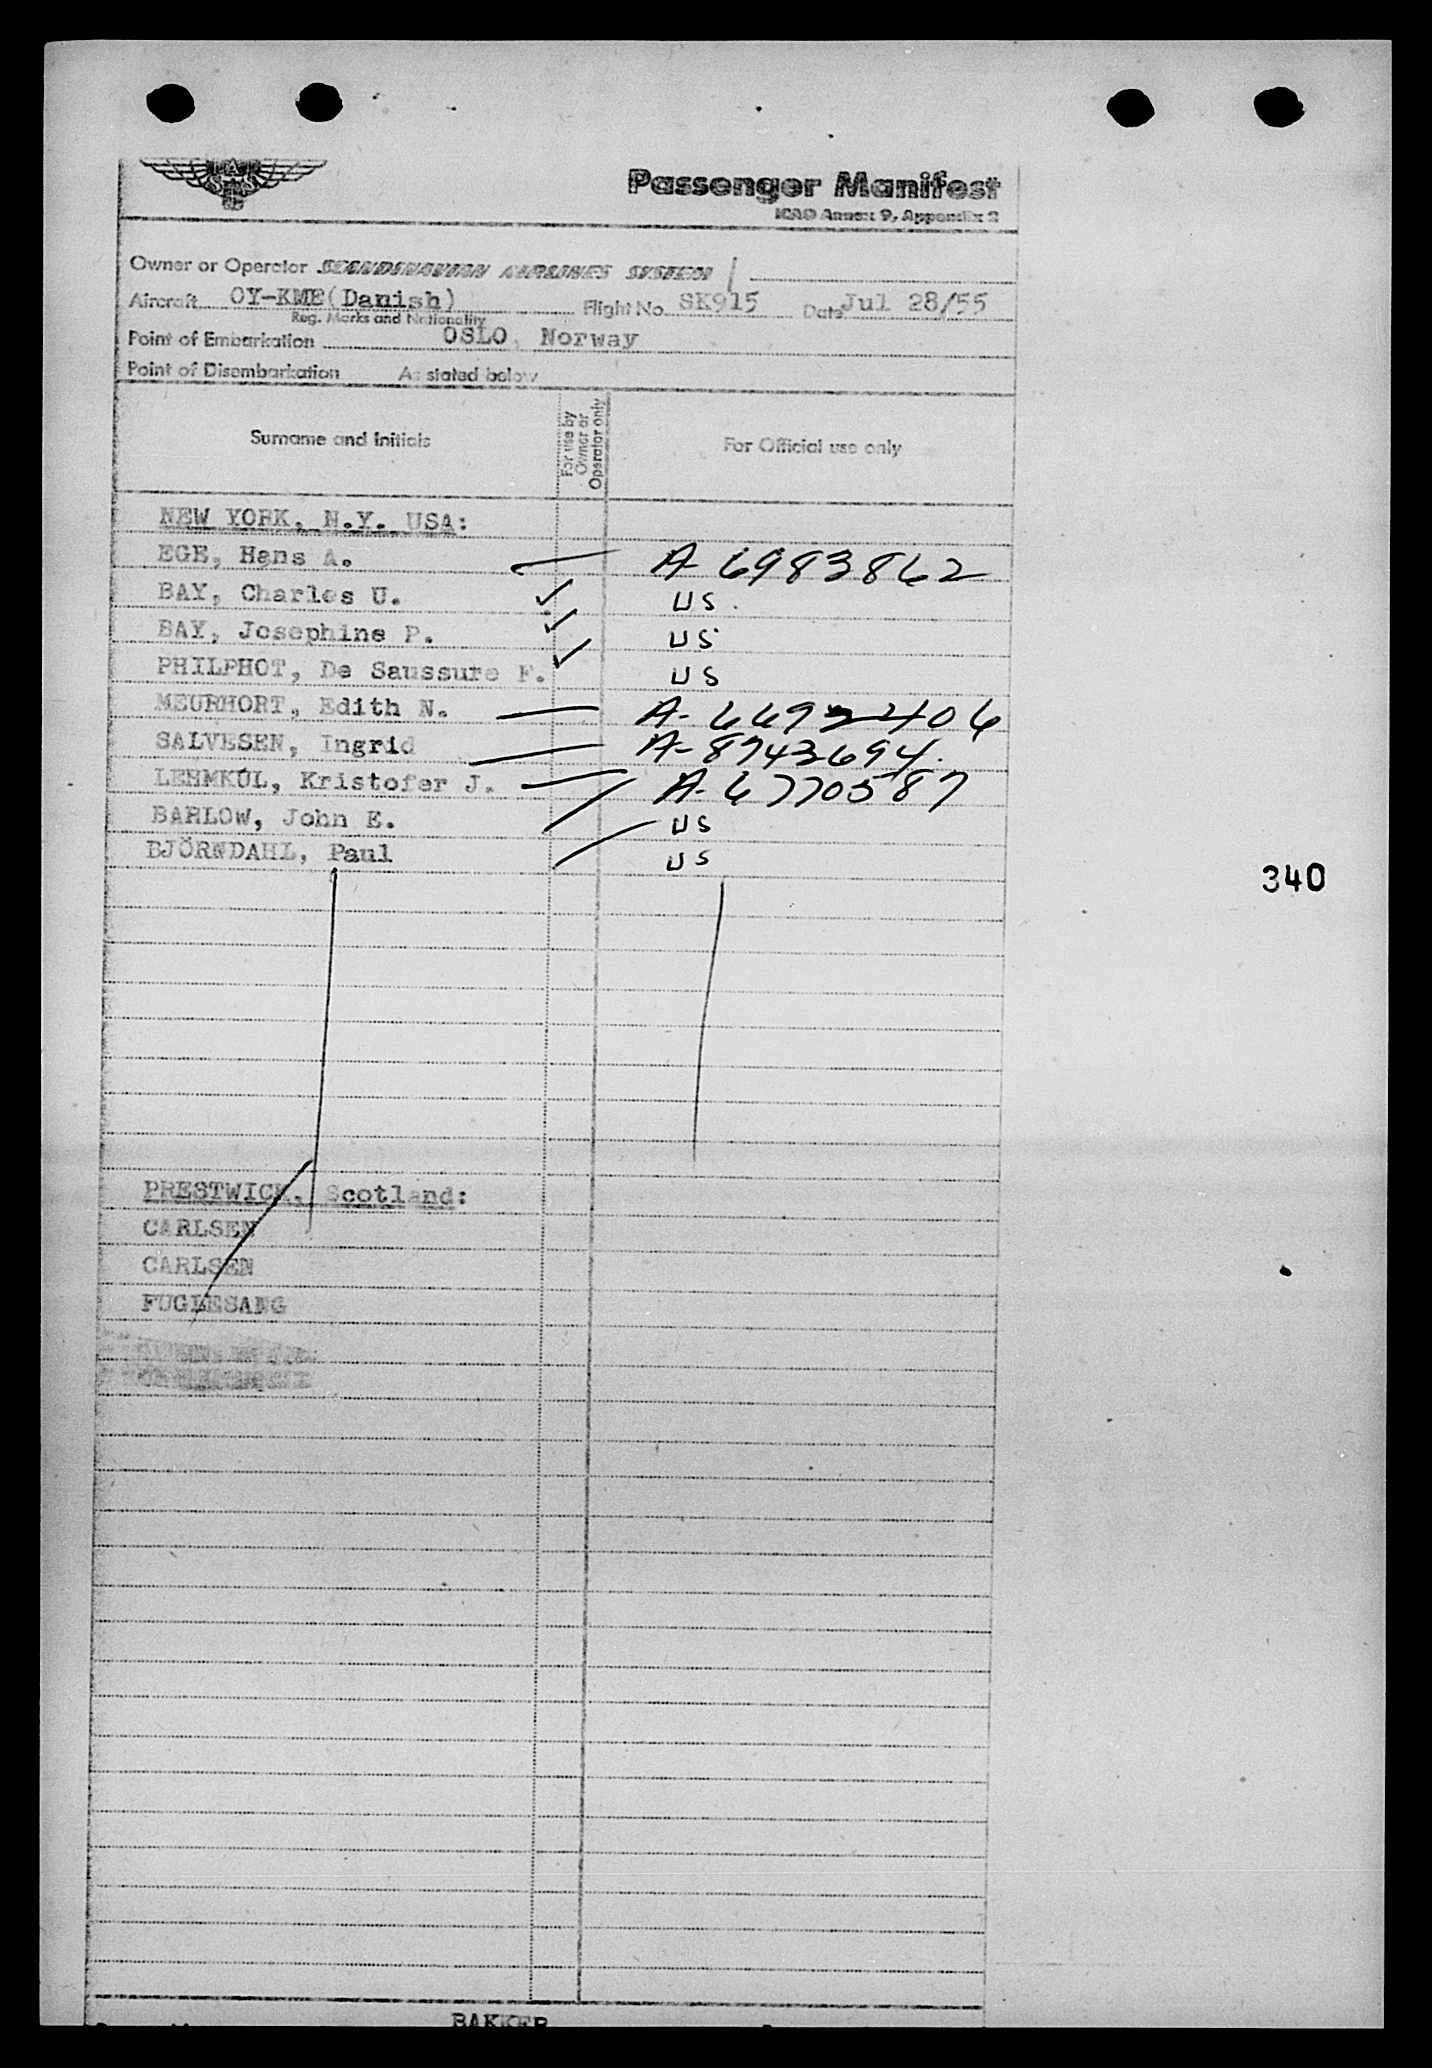 Passenger Manifest
ICAO Annex 9, Appendix 2
Owner or Operator SCANDINAVIAN AIRLINES SYSTEM
Aircraft OY-KME(Danish) Flight No. SK915 Date Jul 28/55
Reg. Marks and Nationality
Point of Embarkation OSLO, Norway
Point of Disembarkation As stated below
Surname and Initials For use by Owner or Operator only For Official use only
NEW YORK, N.Y. USA:
EGE, Hans A. A-6983862
BAY, Charles U. US.
BAY, Josephine P. US
PHILPHOT, De Saussure F. US
MEURHORT, Edith N. A-
SALVESEN, Ingrid A-8743694.
LEHMKÜL, Kristofer J. A-6770587
BARLOW, John E. US
BJÖRNDAHL, Paul US
340
PRESTWICK, Scotland:
CARLSEN
CARLSEN
FUGLESANG
BAKKER